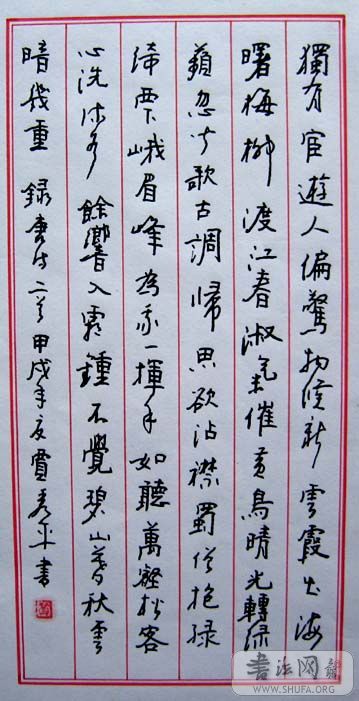 獨有宦遊人偏驚物候新雲霞出海
曙梅柳渡江春淑氣催黄鳥晴光轉緑
蘋忽聞歌古調歸思欲沾襟蜀僧抱緑
綺西下峨眉峰為我一揮手如聽萬壑松客
心洗流水餘響入霜鍾不覺碧山暮秋雲
暗幾重 録唐詩二首甲戌年夏賈秀平書
书法网
WWW.SHUFA.ORG